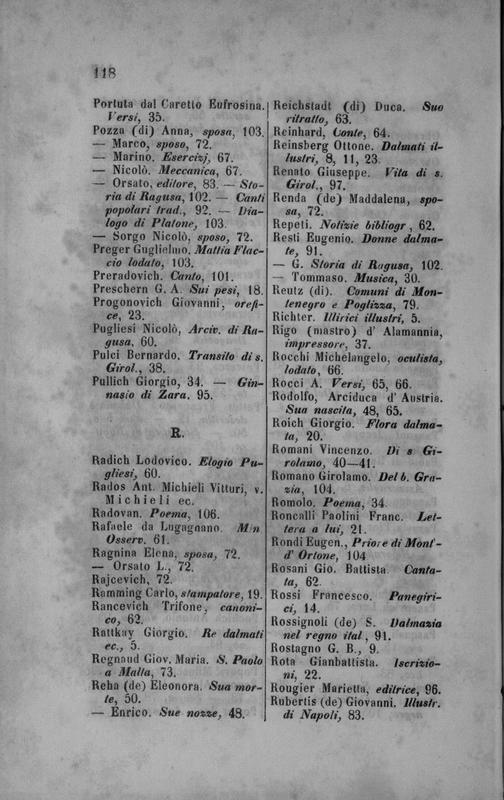 118
Portuta dal Caretto Eufrosina.
Versi, 35.
Pozza (di) Anna, sposa, 103.
— Marco, sposo, 72.
— Marino. Esercizj, 67.
— Nicolò. Meccanica, 67.
— Orsato, editore, 83. — Sto-
ria di Ragusa, 102. — Canti
popolari trad., 92. — Dia-
logo di Platone, 103.
— Sorgo Nicolò, sposo, 72.
Preger Guglielmo. Mattia Flac-
cio lodato, 103.
Preradovich. Canto, 101.
Preschern G. A. Sui pesi, 18.
Progonovich Giovanni, orefi-
ce, 23.
Pugliesi Nicolò, Arciv. di Ra-
gusa, 60.
Pulci Bernardo. Transito di s.
Girol., 38.
Pullich Giorgio, 34. — Gin-
nasio di Zara. 95.
R.
Radich Lodovico. Elogio Pu-
gliesi, 60.
Rados Ant. Michieli Vitturi, v.
Michieli ec.
Radovan. Poema, 106.
Rafaele da Lugagnano. Min
Osserv. 61.
Ragnina Elena, sposa, 72.
— Orsato L., 72.
Rajcevich, 72.
Ramming Carlo, stampatore, 19.
Rancevich Trifone, canoni-
co, 62.
Rattkay Giorgio. Re dalmati
ec., 5.
Regnaud Giov. Maria. S. Paolo
a Malta, 73.
Reha (de) Eleonora. Sua mor-
te, 50.
— Enrico. Sue nozze, 48.
Reichstadt (di) Duca. Suo
ritratto, 63.
Reinhard, Conte, 64.
Reinsberg Ottone. Dalmati il-
lustri, 8, 11, 23.
Renato Giuseppe. Vita di s.
Girol., 97.
Renda (de) Maddalena, spo-
sa, 72.
Repeti. Notizie bibliogr, 62.
Resti Eugenio. Donne dalma-
te, 91.
— G. Storia di Ragusa, 102.
— Tommaso. Musica, 30.
Reutz (di). Comuni di Mon-
tenegro e Poglizza, 79.
Richter. Illirici illustri, 5.
Rigo (mastro) d' Alamannia,
impressore, 37.
Rocchi Michelangelo, oculista,
lodato, 66.
Rocci A. Versi, 65, 66.
Rodolfo, Arciduca d' Austria.
Sua nascita, 48, 65.
Roich Giorgio. Flora dalma-
ta, 20.
Romani Vincenzo. Di s Gi-
rolamo, 40—41.
Romano Girolamo. Del b. Gra-
zia, 104.
Romolo. Poema, 34.
Roncalli Paolini Franc. Let-
tera a lui, 21.
Rondi Eugen., Priore di Mont'-
d' Ortone, 104
Rosani Gio. Battista. Canta-
ta, 62.
Rossi Francesco. Panegiri-
ci, 14.
Rossignoli (de) S. Dalmazia
nel regno ital, 91.
Rostagno G. B., 9.
Rota Gianbattista. Iscrizio-
ni, 22.
Rougier Marietta, editrice, 96.
Rubertis (de) Giovanni. Illustr.
di Napoli, 83.